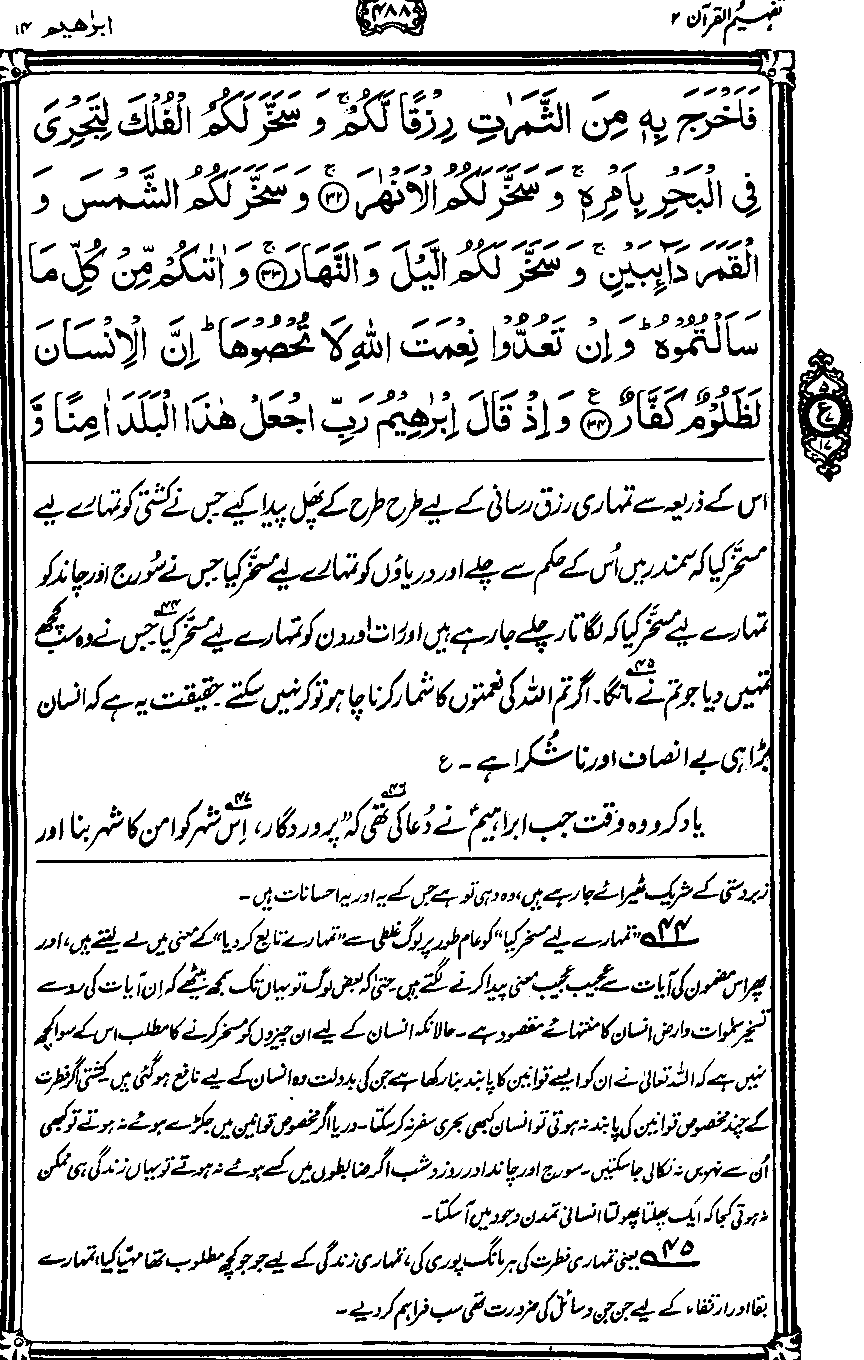 تفہیم القرآن ۲
۴۸۸
ابرٰھیم ۱۴
فَاَخْرَجَ بِهٖ مِنَ الثَّمَرٰتِ رِزْقًا لَّكُمْ ۚ وَ سَخَّرَ لَكُمُ الْفُلْكَ لِتَجْرِیَ
فِی الْبَحْرِ بِاَمْرِهٖ ۚ وَ سَخَّرَ لَكُمُ الْاَنْهٰرَ ۚ ﴿۳۲﴾ وَ سَخَّرَ لَكُمُ الشَّمْسَ وَ
الْقَمَرَ دَآىِٕبَیْنِ ۚ وَ سَخَّرَ لَكُمُ الَّیْلَ وَ النَّهَارَ ۚ ﴿۳۳﴾ وَ اٰتٰىكُمْ مِّنْ كُلِّ مَا
سَاَلْتُمُوْهُ ؕ وَ اِنْ تَعُدُّوْا نِعْمَتَ اللّٰهِ لَا تُحْصُوْهَا ؕ اِنَّ الْاِنْسَانَ
لَظَلُوْمٌ كَفَّارٌ ۠ ﴿۳۴﴾ وَ اِذْ قَالَ اِبْرٰهِیْمُ رَبِّ اجْعَلْ هٰذَا الْبَلَدَ اٰمِنًا وَّ
۵
ع
۱۷
اس کے ذریعہ سے تمہاری رزق رسانی کے لیے طرح طرح کے پھل پیدا کیے جس نے کشتی کو تمہارے لیے
مسخّر کیا کہ سمندر میں اُس کے حکم سے چلے اور دریاؤں کو تمہارے لیے مسخّر کیا جس نے سُورج اور چاند کو
تمہارے لیے مسخّر کیا کہ لگاتار چلے جارہے ہیں اور رات اور دن کو تمہارے لیے مسخّر کیا۴۴ جس نے وہ سب کچھ
تمہیں دیا جو تم نے مانگا۴۵۔ اگر تم اللہ کی نعمتوں کا شمار کرنا چاہو تو کر نہیں سکتے حقیقت یہ ہے کہ انسان
بڑا ہی بے انصاف اور ناشُکرا ہے ۔ ع
یاد کرو وہ وقت جب ابراہیمؑ نے دُعا کی تھی۴۶ کہ "پروردگار، اِس شہر۴۷ کو امن کا شہر بنا اور
زبردستی کے شریک ٹھیرائے جارہے ہیں، وہ وہی تو ہے جس کے یہ اور یہ احسانات ہیں۔
۴۴ "تمہارے لیے مسخر کیا" کو عام طور پر لوگ غلطی سے "تمہارے تابع کردیا" کے معنی میں لے لیتے ہیں، اور
پھر اس مضمون کی آیات سے عجیب عجیب معنی پیدا کرنے لگتے ہیں حتیٰ کہ بعض لوگ تو یہاں تک سمجھ بیٹھے کہ اِن آیات کی رو سے
تسخیر سمٰوات وارض انسان کا منتہائے مقصود ہے۔ حالانکہ انسان کے لیے ان چیزوں کو مسخر کرنے کا مطلب اس کے سوا کچھ
نہیں ہے کہ اللہ تعالیٰ نے ان کو ایسے قوانین کا پابند بنا رکھا ہے جن کی بدولت وہ انسان کے لیے نافع ہوگئی ہیں کشتی اگر فطرت
کے چند مخصوص قوانین کی پابند نہ ہوتی تو انسان کبھی بحری سفر نہ کرسکتا۔ دریا اگر مخصوص قوانین میں جکڑے ہوئے نہ ہوتے تو کبھی
اُن سے نہریں نہ نکالی جاسکتیں۔ سورج اور چاند اور روز و شب اگر ضابطوں میں کسے ہوئے نہ ہوتے تو یہاں زندگی ہی ممکن
نہ ہوتی کجا کہ ایک پھلتا پھولتا انسانی تمدن وجود میں آسکتا۔
۴۵ یعنی تمہاری فطرت کی ہر مانگ پوری کی، تمہاری زندگی کے لیے جو جو کچھ مطلوب تھا مہیا کیا، تمہارے
بقا اور ارتقاء کے لیے جن جن وسائل کی ضرورت تھی سب فراہم کردیے۔